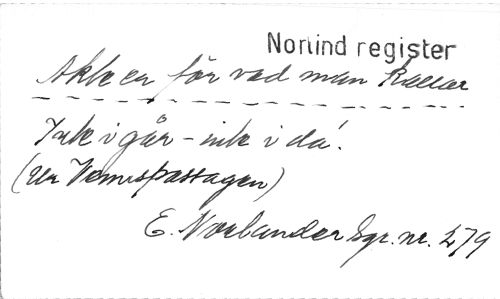 Norlind register
Akta er för vad man kallar
Inte i går - inte i da'.
(ur Venuspassagen)
E. Norlander Sgr. nr. 279